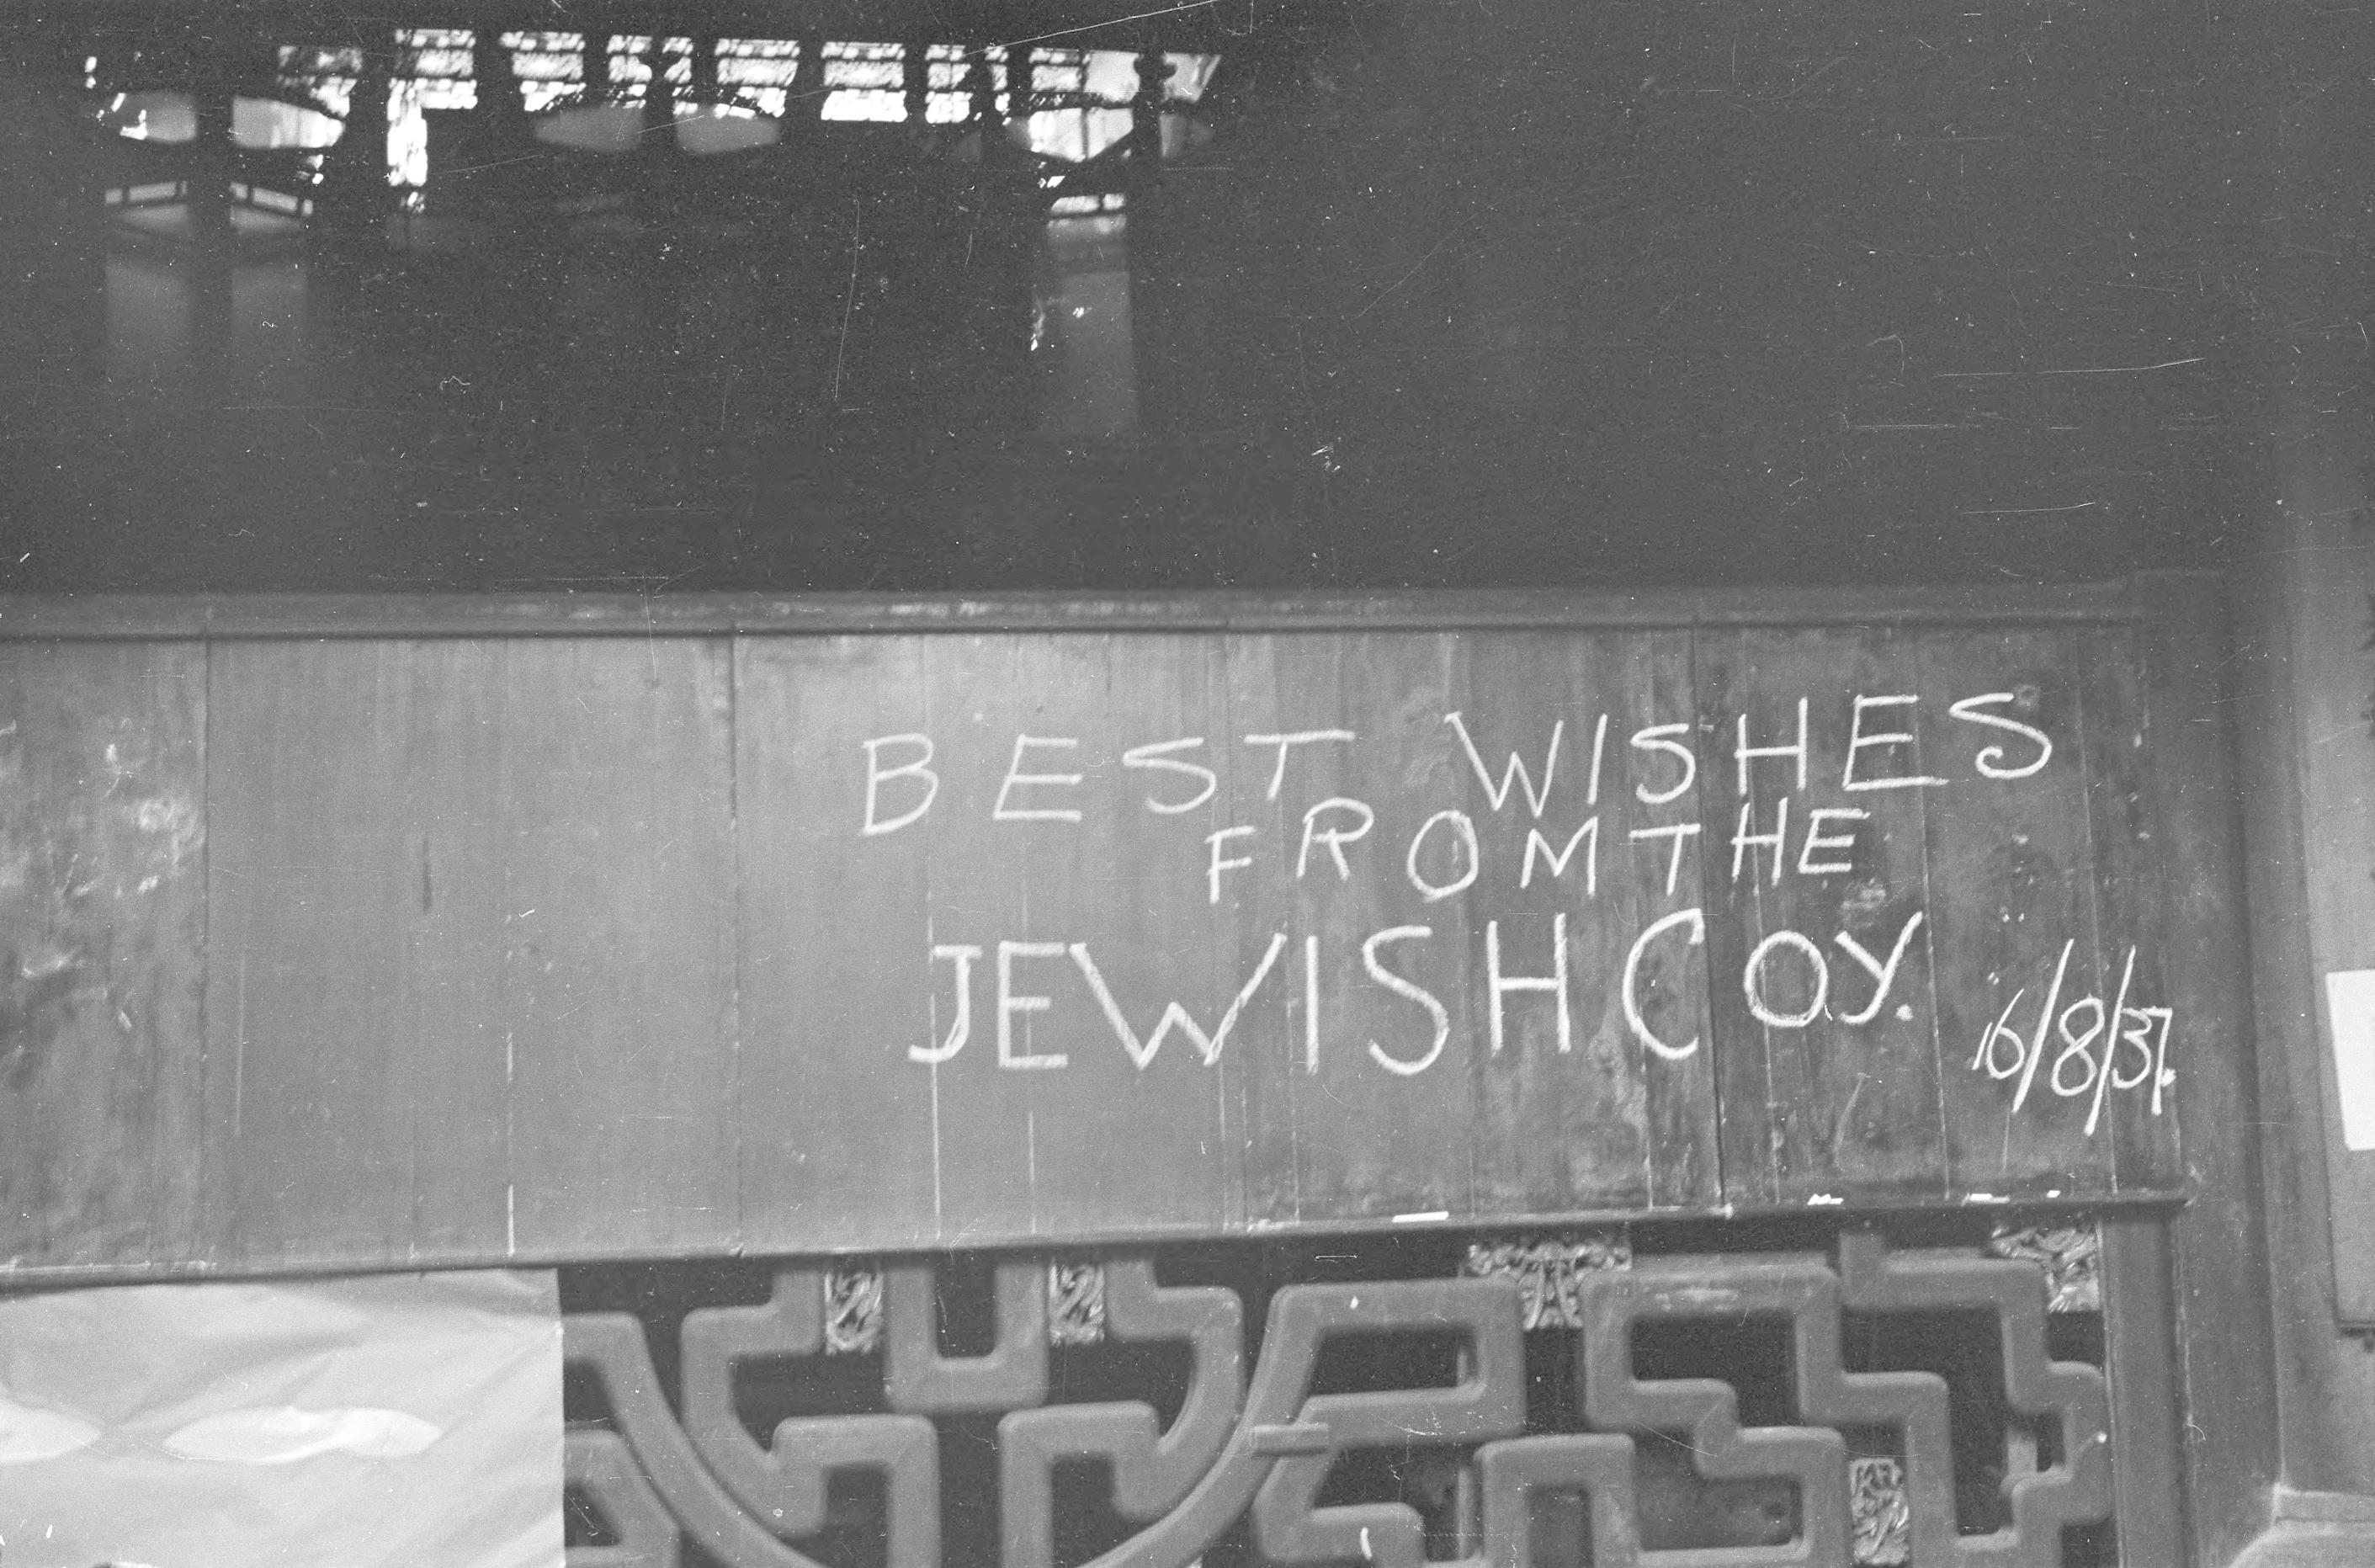 BEST WISHES
FROM THE
JEWISH COY.
16/8/37.